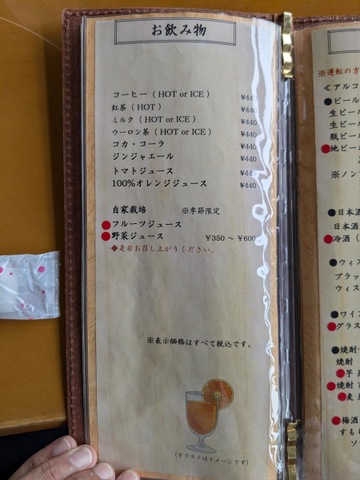 お飲み物
コーヒー（HOT or ICE） ¥440
紅茶（HOT） ¥440
ミルク（HOT or ICE） ¥440
ウーロン茶（HOT or ICE） ¥440
コカ・コーラ ¥440
ジンジャエール ¥440
トマトジュース ¥440
100%オレンジジュース ¥440
自家栽培 ※季節限定
●フルーツジュース
●野菜ジュース ¥350～¥600
◆是非お召し上がりください。
※表示価格はすべて税込です。
(イラストはイメージです)
※運転の方
≪アルコ
●ビール
生ビール
生ビール
瓶ビール
●地ビール
※ノン
●日本酒
日本酒
●冷酒（
●ウィス
ブラッ
ウィス
●ワイ
●グラス
●焼酎
焼酎
●芋
●麦
●梅酒
すも
ソ